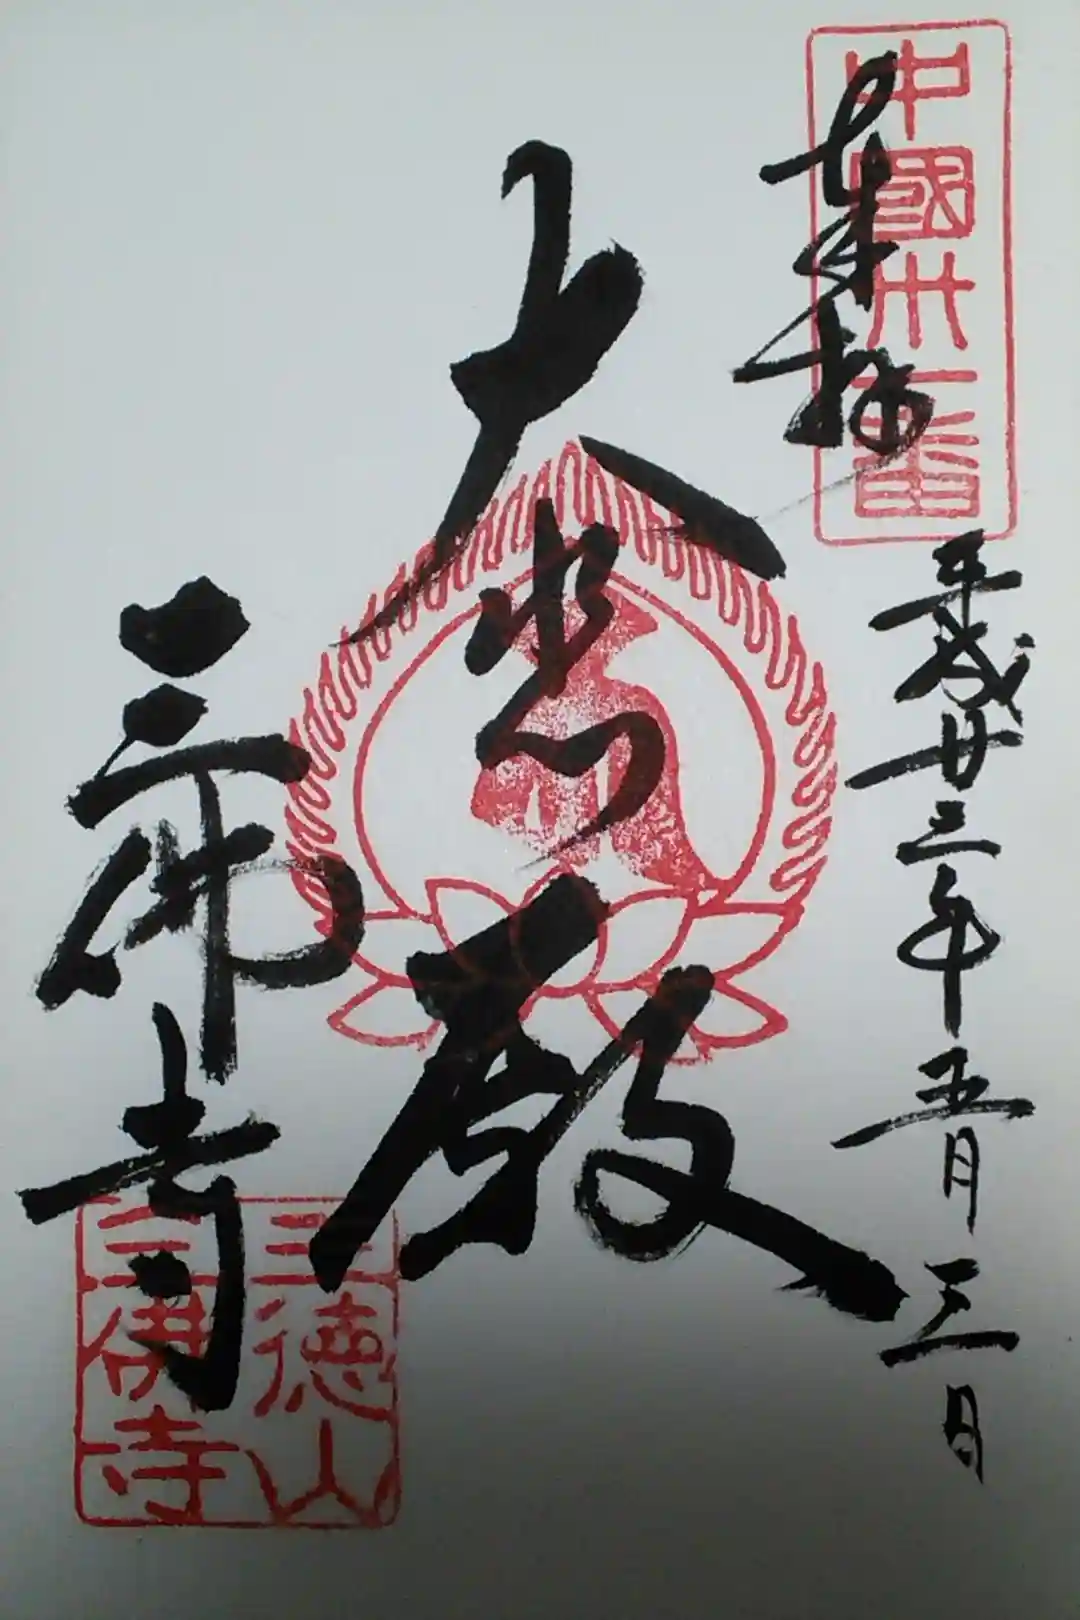 奉拝
中國卅一番
平成廿三年五月三日
大悲殿
三佛寺
三徳山
三佛寺